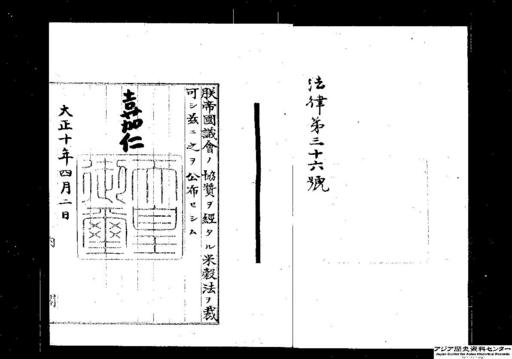 法律第三十六號
朕帝國議會ノ協贊ヲ經タル米穀法ヲ裁
可シ茲ニ之ヲ公布セシム
嘉仁
天皇
御璽
大正十年四月二日
内閣
アジア歴史資料センター
Japan Center for Asian Historical Records